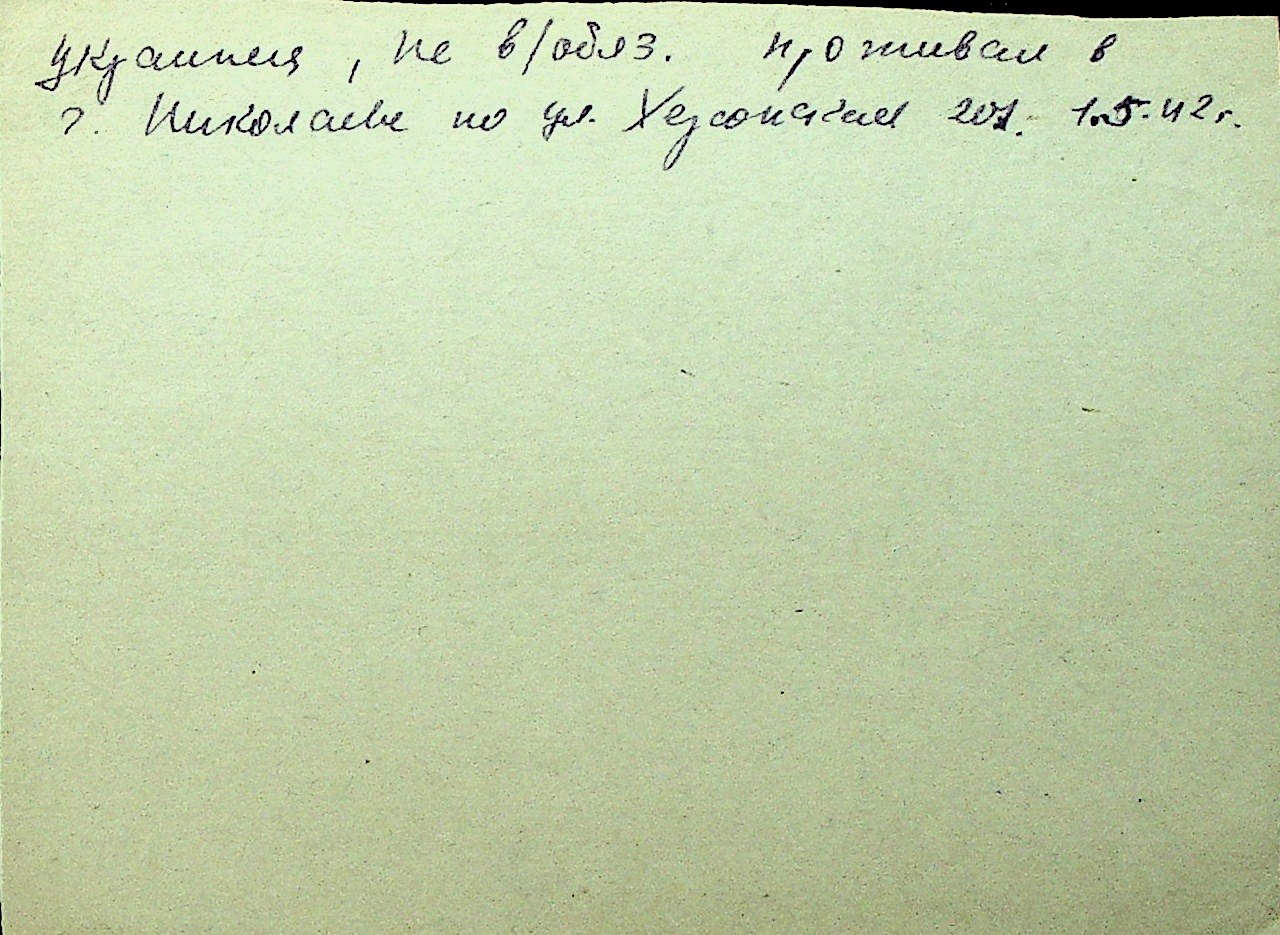 украинец, не в/обяз. проживал в
г. Николаеве по ул. Херсонская 207. 1.5.42г.